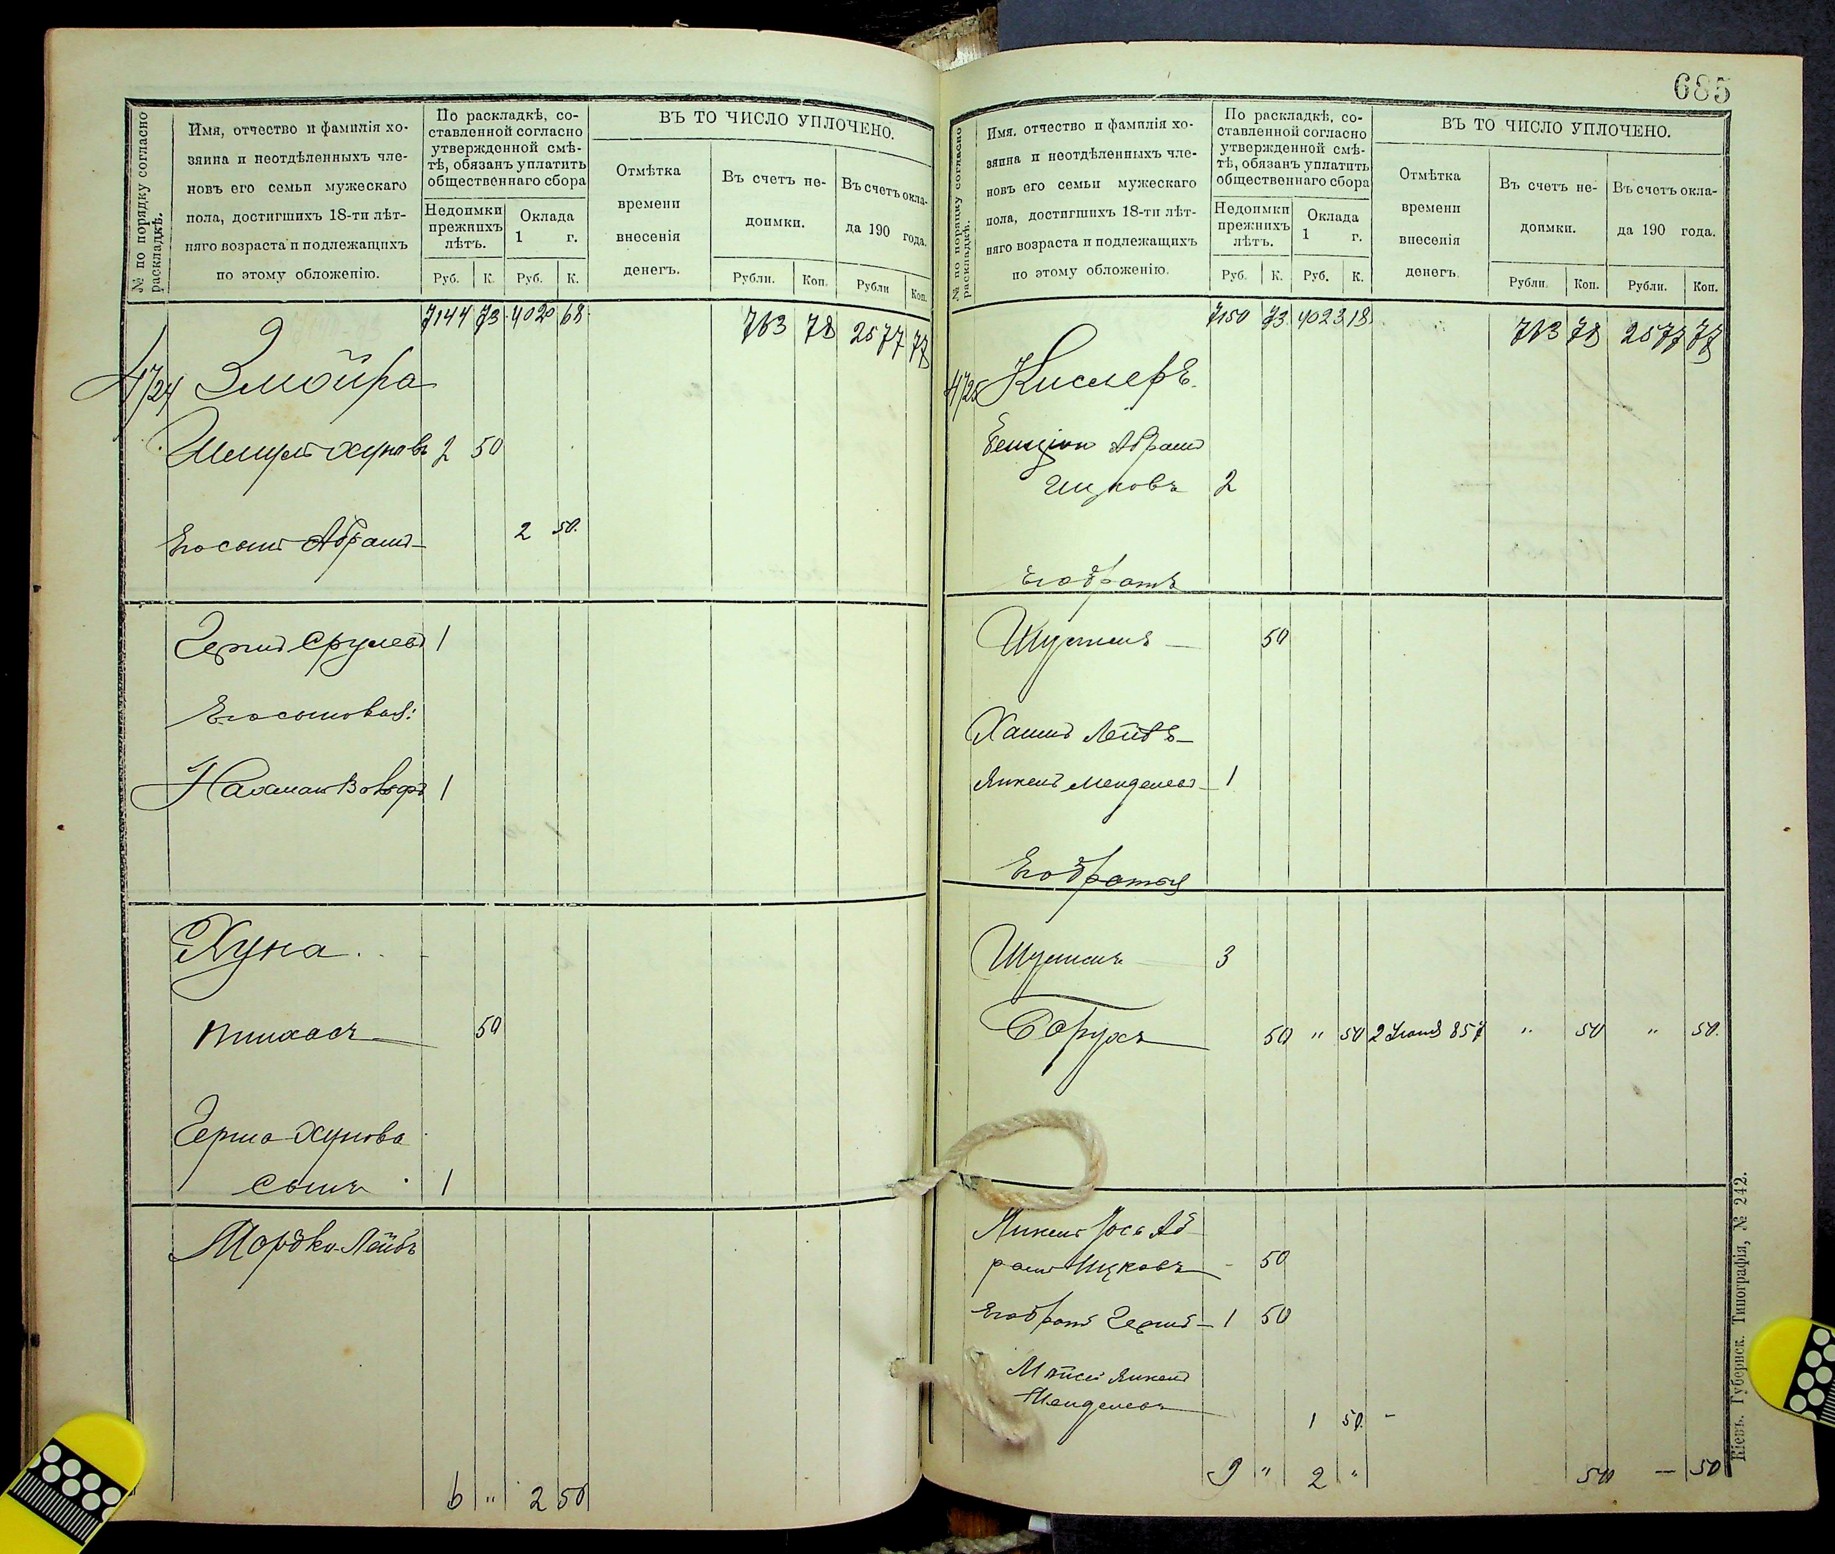 685
№ по порядку согласно раскладкѣ.
Имя, отчество и фамилія хо-
зяина и неотдѣленныхъ чле-
новъ его семьи мужескаго
пола, достигшихъ 18-ти лѣт-
няго возраста и подлежащихъ
по этому обложенію.
По раскладкѣ, со-
ставленной согласно
утвержденной смѣ-
тѣ, обязанъ уплатить
общественнаго сбора
Недоимки прежнихъ лѣтъ.
Оклада 1 г.
Руб. К. Руб. К.
ВЪ ТО ЧИСЛО УПЛОЧЕНО.
Отмѣтка
времени
внесенія
денегъ.
Въ счетъ не-
доимки.
Рубли. Коп.
Въ счетъ окла-
да 190 года.
Рубли Коп.
7144 73 4020 68 763 78 2577 77
4724
Шмулъ Хуновъ 2 50
Его сынъ Абрамъ 2 50.
Герша Срулевъ 1
Его сыновья:
Нахман Вольфъ 1
Хуна
Пинхасъ 50
Герша Хунова
сынъ 1
Мордко-Лейбъ
6 " 2 50
№ по порядку согласно раскладкѣ.
Имя, отчество и фамилія хо-
зяина и неотдѣленныхъ чле-
новъ его семьи мужескаго
пола, достигшихъ 18-ти лѣт-
няго возраста и подлежащихъ
по этому обложенію.
По раскладкѣ, со-
ставленной согласно
утвержденной смѣ-
тѣ, обязанъ уплатить
общественнаго сбора
Недоимки прежнихъ лѣтъ.
Оклада 1 г.
Руб. К. Руб. К.
ВЪ ТО ЧИСЛО УПЛОЧЕНО.
Отмѣтка
времени
внесенія
денегъ.
Въ счетъ не-
доимки.
Рубли. Коп.
Въ счетъ окла-
да 190 года.
Рубли. Коп.
7150 73 4023 18 763 78 2577 77
4725 Кислеръ.
Бенціон Абрамъ
Ицковъ 2
Его братъ
50
Хаимъ Лейбъ
Янкель Менделевъ 1
Его братья
3
Борухъ 50 " 50 2 857 " 50 " 50.
Янкель Іось Аб
рамъ Ицковъ - 50
Его братъ Герша 1 50
Янкель
Менделевъ 1 50. -
9 " 2 " 50 — 50
Кіевъ. Губернск. Типографія, № 242.